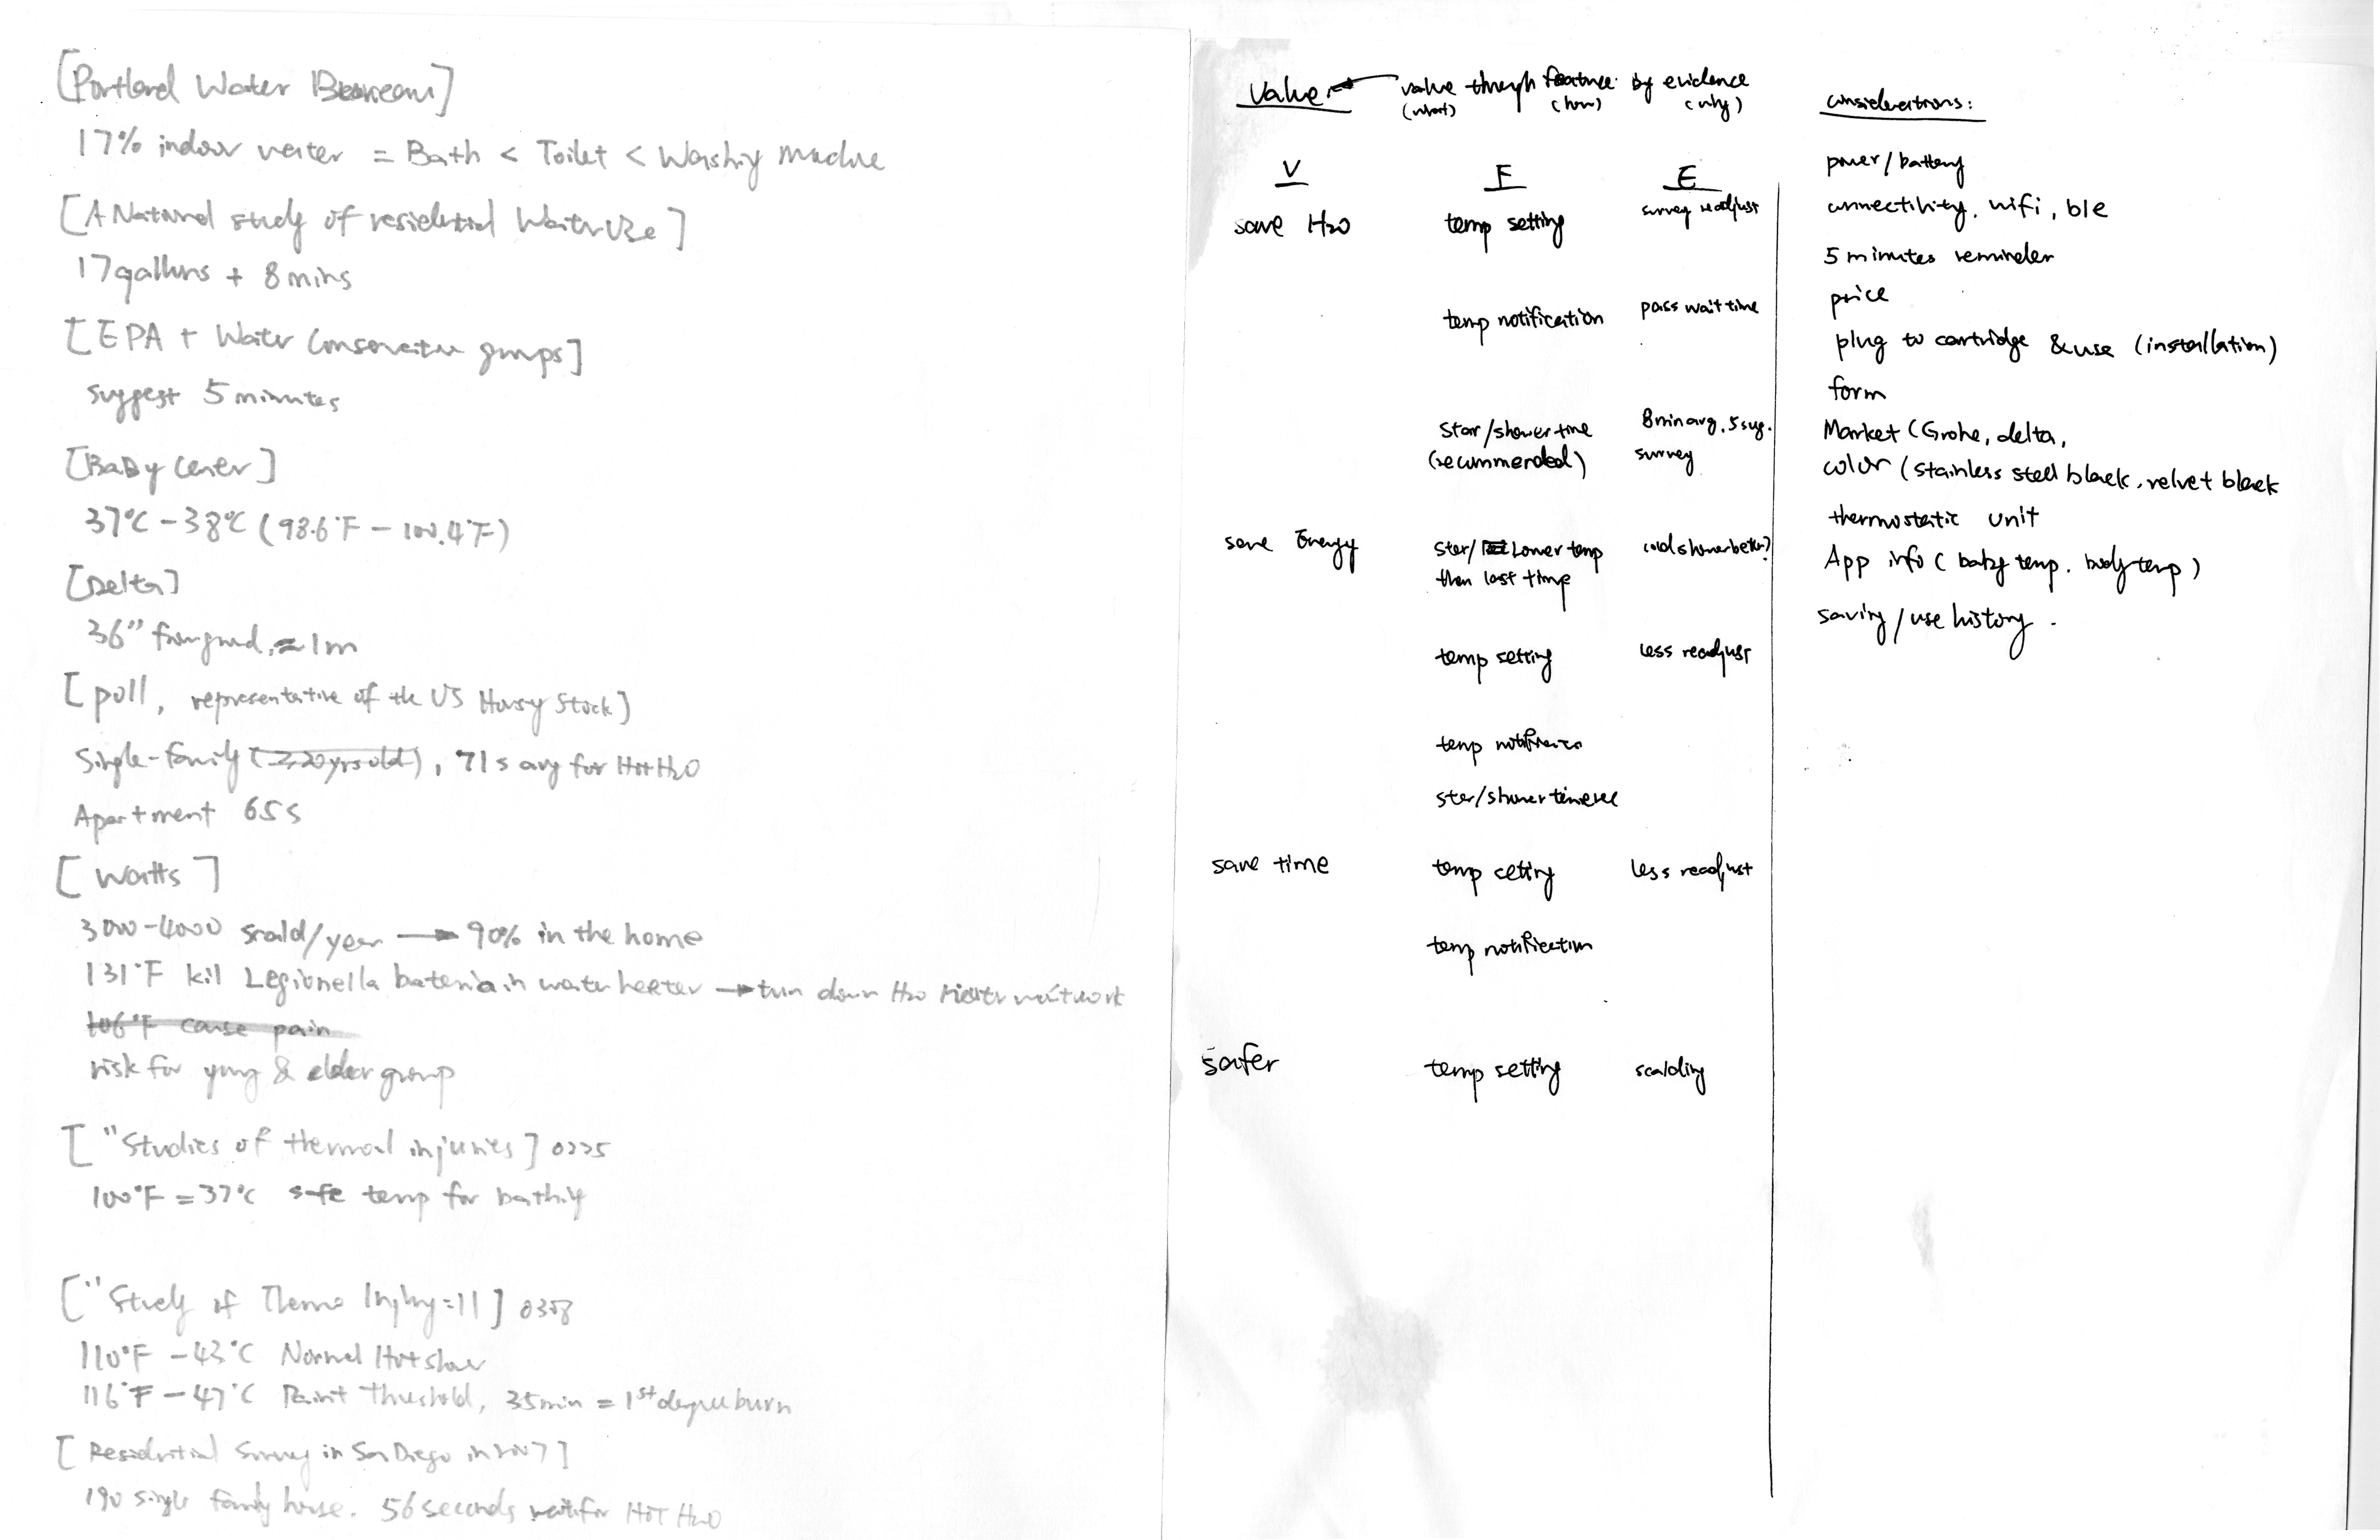 [Portland Water Bureau]
17% indoor water = Bath < Toilet < Washing Machine
[A National study of residential Water Use]
17 gallons + 8 mins
[EPA + Water Conservation groups]
suggest 5 minutes
[BaBy Center]
37°C - 38°C (98.6°F - 100.4°F)
[Delta]
36" from ground, ≈ 1m
[poll, representative of the US Housing Stock]
Single-family (≥20 yrs old), 71s avg for Hot H2O
Apartment 65s
[Watts]
3000-4000 scald/year → 90% in the home
131°F kil Legionella bateria in water heater → turn down H2O not work
106°F cause pain
risk for young & elder group
["Studies of thermal injuries] 0225
100°F = 37°C safe temp for bathing
["Study of Thermo Injury = 11] 0358
110°F - 43°C Normal Hot shower
116°F - 47°C Paint Threshold, 35min = 1st degree burn
[Residential Survey in San Diego in 2007]
190 single family house. 56 seconds wait for HOT H2O
Value ← value through feature by evidence
(what) (how) (why)
V F E
save H2O temp setting survey readjust
temp notification pass wait time
Star/shower time 8min avg, 5 sug.
(recommended) survey
save Energy Star/ Lower temp cold shower better?
then last time
temp setting less readjust
temp notification
star/shower time
save time temp setting less readjust
temp notification
safer temp setting scalding
considerations:
power/battery
connectivity, wifi, ble
5 minutes reminder
price
plug to cartridge & use (installation)
form
Market (Grohe, delta,
color (stainless steel black, velvet black
thermostatic unit
App info (baby temp. body temp)
saving/use history.